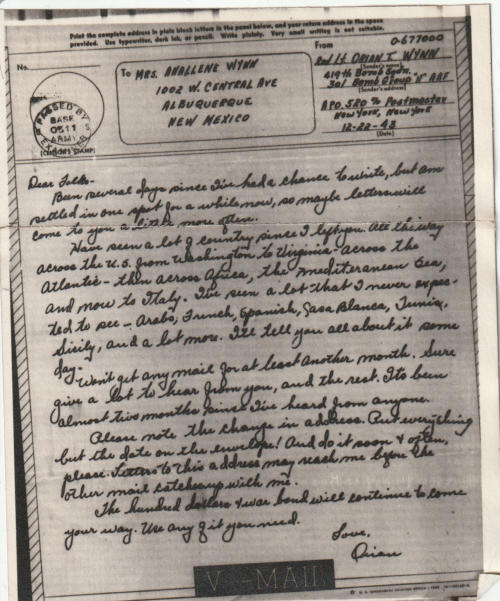 Print the complete address in plain block letters in the panel below, and your return address in the space
provided. Use typewriter, dark ink, or pencil. Write plainly. Very small writing is not suitable.
No.
PASSED BY
BASE
0511
ARMY
EXAMINER
(CENSOR'S STAMP)
To MRS. ANALLENE WYNN
1002 W. CENTRAL AVE
ALBUQUERQUE
NEW MEXICO
From
O-677000
2nd Lt ORIAN T. WYNN
(Sender's name)
419th Bomb Sqdn.
301 Bomb Group "H" AAF
(Sender's address)
APO 520 % Postmaster
New York, New York
12-22-43
(Date)
Dear Folks-
Been several days since I've had a chance to write, but am
settled in one spot for a while now, so maybe letters will
come to you a little more often.
Have seen a lot of country since I left you. All the way
across the U.S. from Washington to Virginia - across the
Atlantic - then across Africa, the Mediteranean Sea,
and now to Italy. I've seen a lot that I never expec-
ted to see - Arabs, French, Spanish, Casa Blanca, Tunis,
Sicily, and a lot more. I'll tell you all about it some
day.
Won't get any mail for at least another month. Sure
give a lot to hear from you, and the rest. Its been
almost two months since I've heard from anyone.
Please note the change in address. Put everything
but the date on the envelope! And do it soon & often,
please. Letters to this address may reach me before the
other mail catches up with me.
The hundred dollars & war bond will continue to come
your way. Use any of it you need.
Love,
Orian
V - MAIL
U. S. GOVERNMENT PRINTING OFFICE